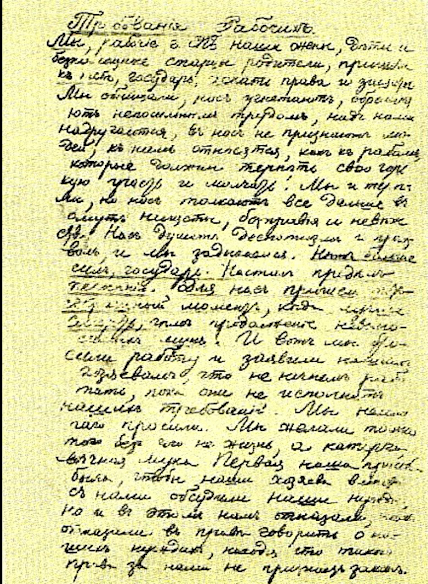 Требованія Рабочихъ.
Мы, рабочіе г. СПБ наши жены, дѣти и
безпомощные старцы родители, пришли
къ тебѣ, государь искать правды и защиты
Мы обнищали, насъ угнетаютъ, обременя
ютъ непосильнымъ трудомъ, надъ нами
надругаются, въ насъ не признаютъ лю
дей, къ намъ относятся, какъ къ рабамъ,
которые должны терпѣть свою горь
кую участь и молчать! Мы и терпѣ
ли, но насъ толкаютъ все дальше въ
омутъ нищеты, безправія и невѣже
ства. Насъ душитъ деспотизмъ и произ
волъ, и мы задыхаемся. Нѣтъ больше
силъ, государь. Насталъ предѣлъ
терпѣнію. Для насъ пришелъ тотъ
страшный моментъ, когда лучше
смерть, чѣмъ продолженіе невыно
симыхъ мукъ. И вотъ мы бро
сили работу и заявили нашимъ
хозяевамъ, что не начнемъ рабо
тать, пока они не исполнятъ
нашихъ требованій. Мы не мно
гаго просили. Мы желали только
того безъ чего не жизнь, а каторга,
вѣчная мука Первая наша просьба
была, чтобы наши хозяева вмѣстѣ
съ нами обсудили наши нужды,
но и въ этомъ намъ отказали,
отказали въ правѣ говорить о на
шихъ нуждахъ, находя что такого
права за нами не признаетъ законъ.